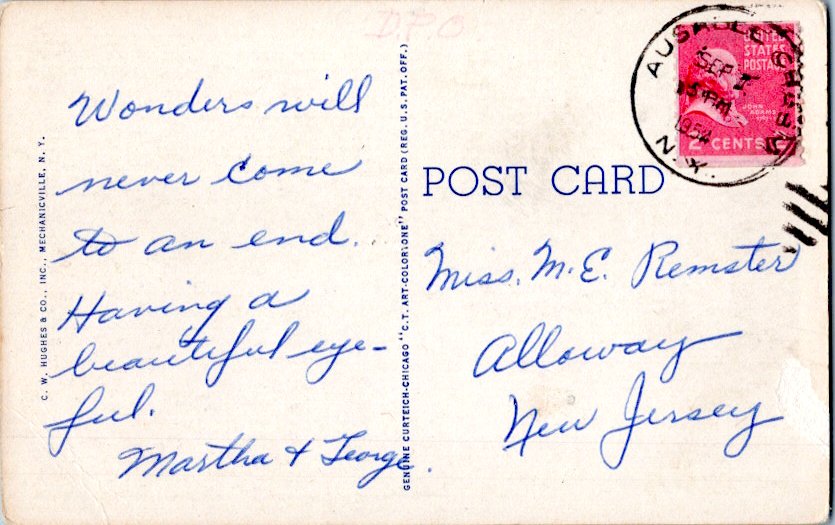 D.P.O
Wonders will
never come
to an end.
Having a
beautiful eye-
ful.
Martha & George.
C. W. HUGHES & CO., INC., MECHANICVILLE, N. Y.
GENUINE CURTEICH-CHICAGO "C.T. ART-COLORTONE" POST CARD (REG. U.S. PAT. OFF.)
POST CARD
Miss. M. E. Remster
Alloway
New Jersey
AUSABLE
SEP
5 PM
1954
N.Y.
UNITED
STATES
POSTAGE
JOHN
ADAMS
2 CENTS